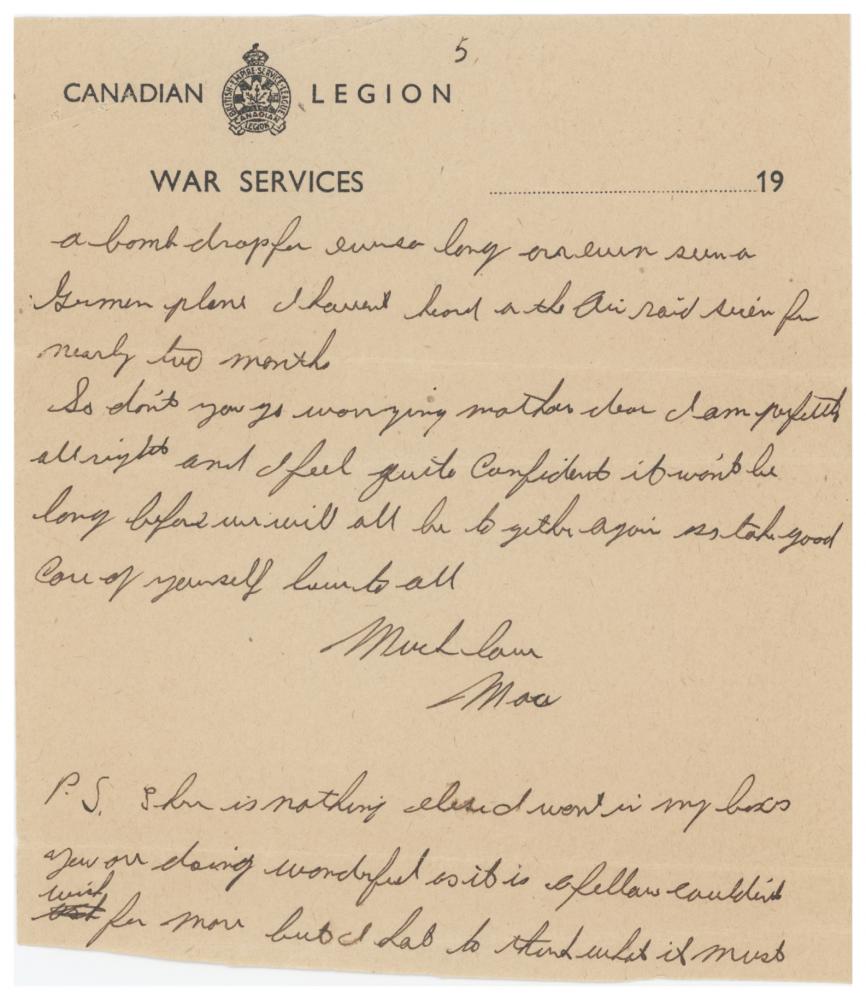 5
CANADIAN LEGION
BRITISH EMPIRE SERVICE LEAGUE
CANADIAN
LEGION
WAR SERVICES 19
a bomb drop for ever so long or even seen a
German plane I havent heard a the Air raid siren for
nearly two months
So don't you go worrying mother dear I am perfectly
all right and I feel quite Confident it won't be
long before we will all be to gether again so take good
Care of yourself love to all
Much love
Mac
P.S. There is nothing else I want in my boxes
you are doing wonderful as it is a fellow couldn't
wish
for more but I hate to think what it must